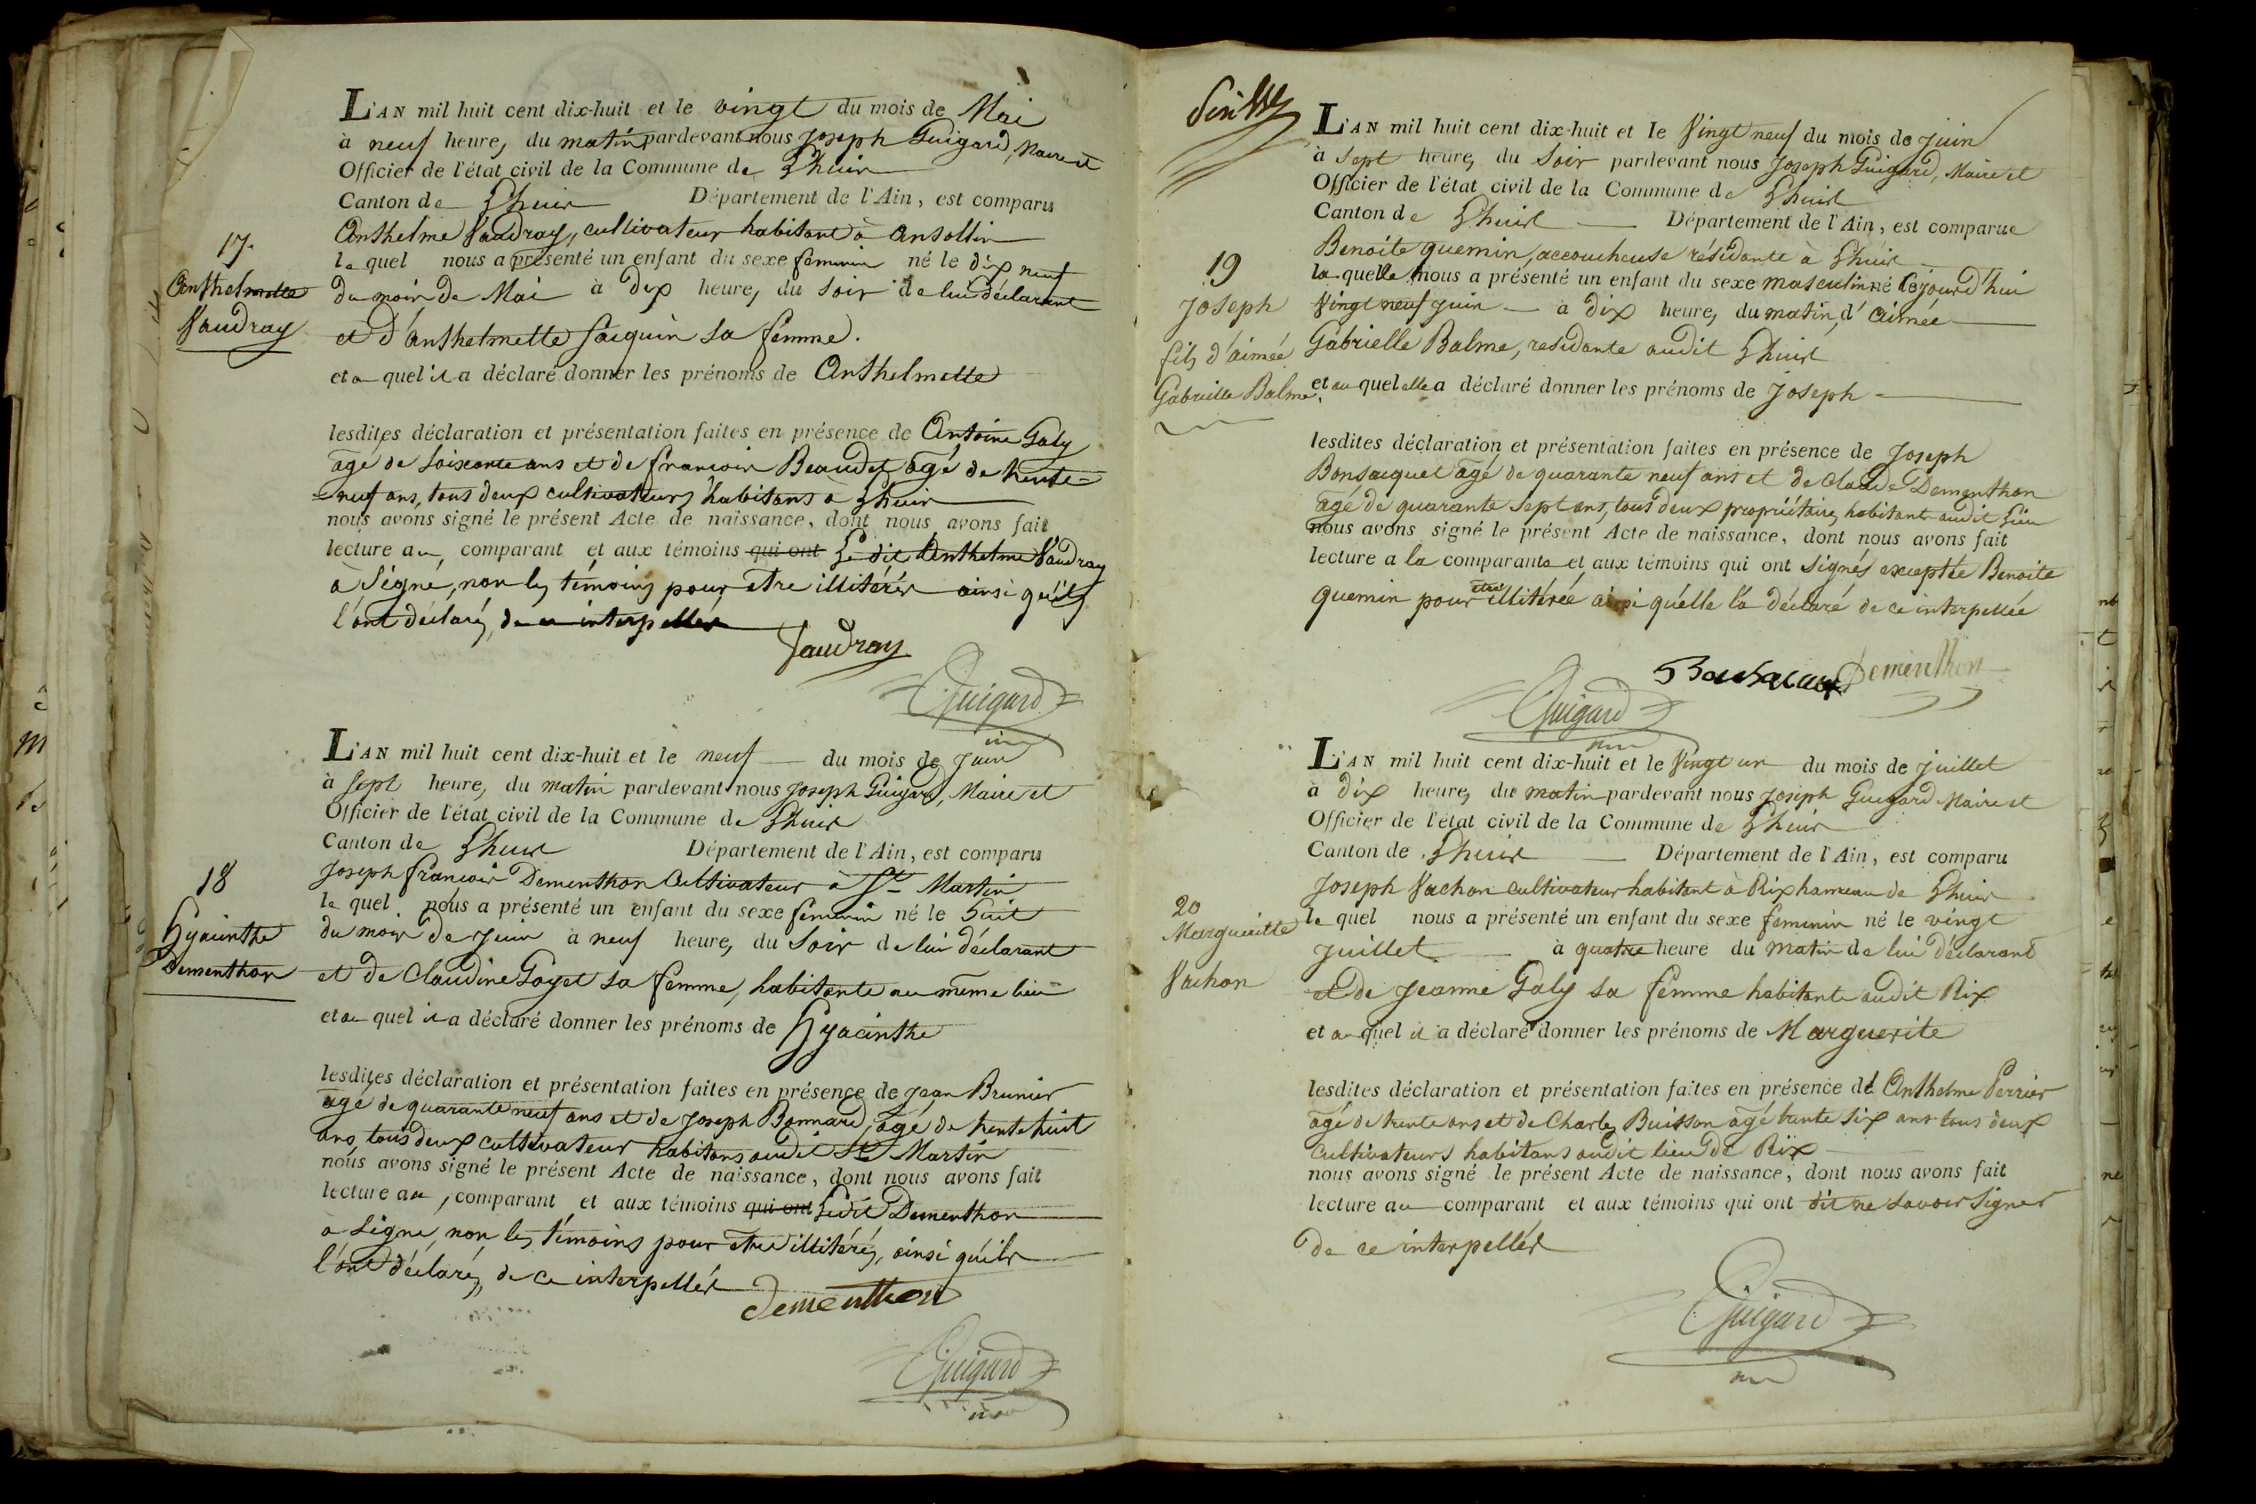 L'AN mil huit cent dix-huit et le vingt du mois de Mai
à neuf heures du matin pardevant nous Joseph Guigard, Maire et
Officier de l'état civil de la Commune de Lhuis
Canton de Lhuis Département de l'Ain, est comparu
Anthelme Vaudray, cultivateur habitant à Ansollin
17.
Anthelmette
Vaudray
le quel nous a présenté un enfant du sexe feminin né le dix neuf
du mois de Mai à dix heures du soir de lui déclarant
et d'anthelmette Jacquin sa femme.
et au quel il a déclaré donner les prénoms de Anthelmette
lesdites déclaration et présentation faites en présence de Antoine Galy
agé de soixante ans et de francois Beaudet agé de trente=
=neuf ans, tous deux cultivateurs habitans à Lhuis
nous avons signé le présent Acte de naissance, dont nous avons fait
lecture au comparant et aux témoins qui ont Le dit Anthelme Vaudray
à Signé, non les témoins pour etre illitérés ainsi qu'ils
l'ont déclarés, de ce interpellés
Vaudray
Guigard
L'AN mil huit cent dix-huit et le neuf du mois de Juin
à sept heures du matin pardevant nous Joseph Guigard, Maire et
Officier de l'état civil de la Commune de Lhuis
Canton de Lhuis Département de l'Ain, est comparu
Joseph francois Dementhon Cultivateur à St Martin
18
Hyacinthe
Dementhon
le quel nous a présenté un enfant du sexe feminin né le huit
du mois de Juin à neuf heures du soir de lui déclarant
et de Claudine Goyet sa femme, habitante au même lieu
et au quel il a déclaré donner les prénoms de Hyacinthe
lesdites déclaration et présentation faites en présence de Jean Brunier
agé de quarante neuf ans et de Joseph Bonnard, agé de trente huit
ans, tous deux cultivateur habitans audit St Martin
nous avons signé le présent Acte de naissance, dont nous avons fait
lecture au comparant et aux témoins qui ont Ledit Dementhon
à signé, non les témoins pour etre illitérés, ainsi qu'ils
l'ont déclarés, de ce interpellés
Dementhon
Guigard
L'AN mil huit cent dix-huit et le Vingt neuf du mois de Juin
à sept heures du soir pardevant nous Joseph Guigard, Maire et
Officier de l'état civil de la Commune de Lhuis
Canton de Lhuis Département de l'Ain, est comparue
Benoite quemin, accoucheuse résidante à Lhuis
19
Joseph
fils d'aimée
Gabrielle Balme.
la quelle nous a présenté un enfant du sexe masculin né cejourd'hui
Vingt neuf juin à dix heures du matin, d'aimée
Gabrielle Balme, residante audit Lhuis
et au quel elle a déclaré donner les prénoms de Joseph
lesdites déclaration et présentation faites en présence de Joseph
Bonsacquet agé de quarante neuf ans et de Claude Dementhon
agé de quarante sept ans, tous deux propriétaires habitants audit Lieu
nous avons signé le présent Acte de naissance, dont nous avons fait
lecture a la comparante et aux témoins qui ont signés exceptée Benoite
quemin pour etre illitérée ainsi qu'elle l'a déclaré de ce interpellée
Dementhon
Guigard
L'AN mil huit cent dix-huit et le Vingt un du mois de Juillet
à dix heures du matin pardevant nous Joseph Guigard Maire et
Officier de l'état civil de la Commune de Lhuis
Canton de Lhuis Département de l'Ain, est comparu
Joseph Vachon cultivateur habitant à Rix hameau de Lhuis
20
Margueritte
Vachon
le quel nous a présenté un enfant du sexe feminin né le vingt
Juillet à quatre heure du matin de lui déclarant
et de Jeanne Galy sa femme habitante audit Rix
et au quel il a déclaré donner les prénoms de Marguerite
lesdites déclaration et présentation faites en présence de Anthelme Perrier
agé de trente ans et de Charles Buisson agé trente six ans tous deux
cultivateurs habitans audit lieu de Rix
nous avons signé le présent Acte de naissance, dont nous avons fait
lecture au comparant et aux témoins qui ont dit ne savoir signer
de ce interpellés
Guigard